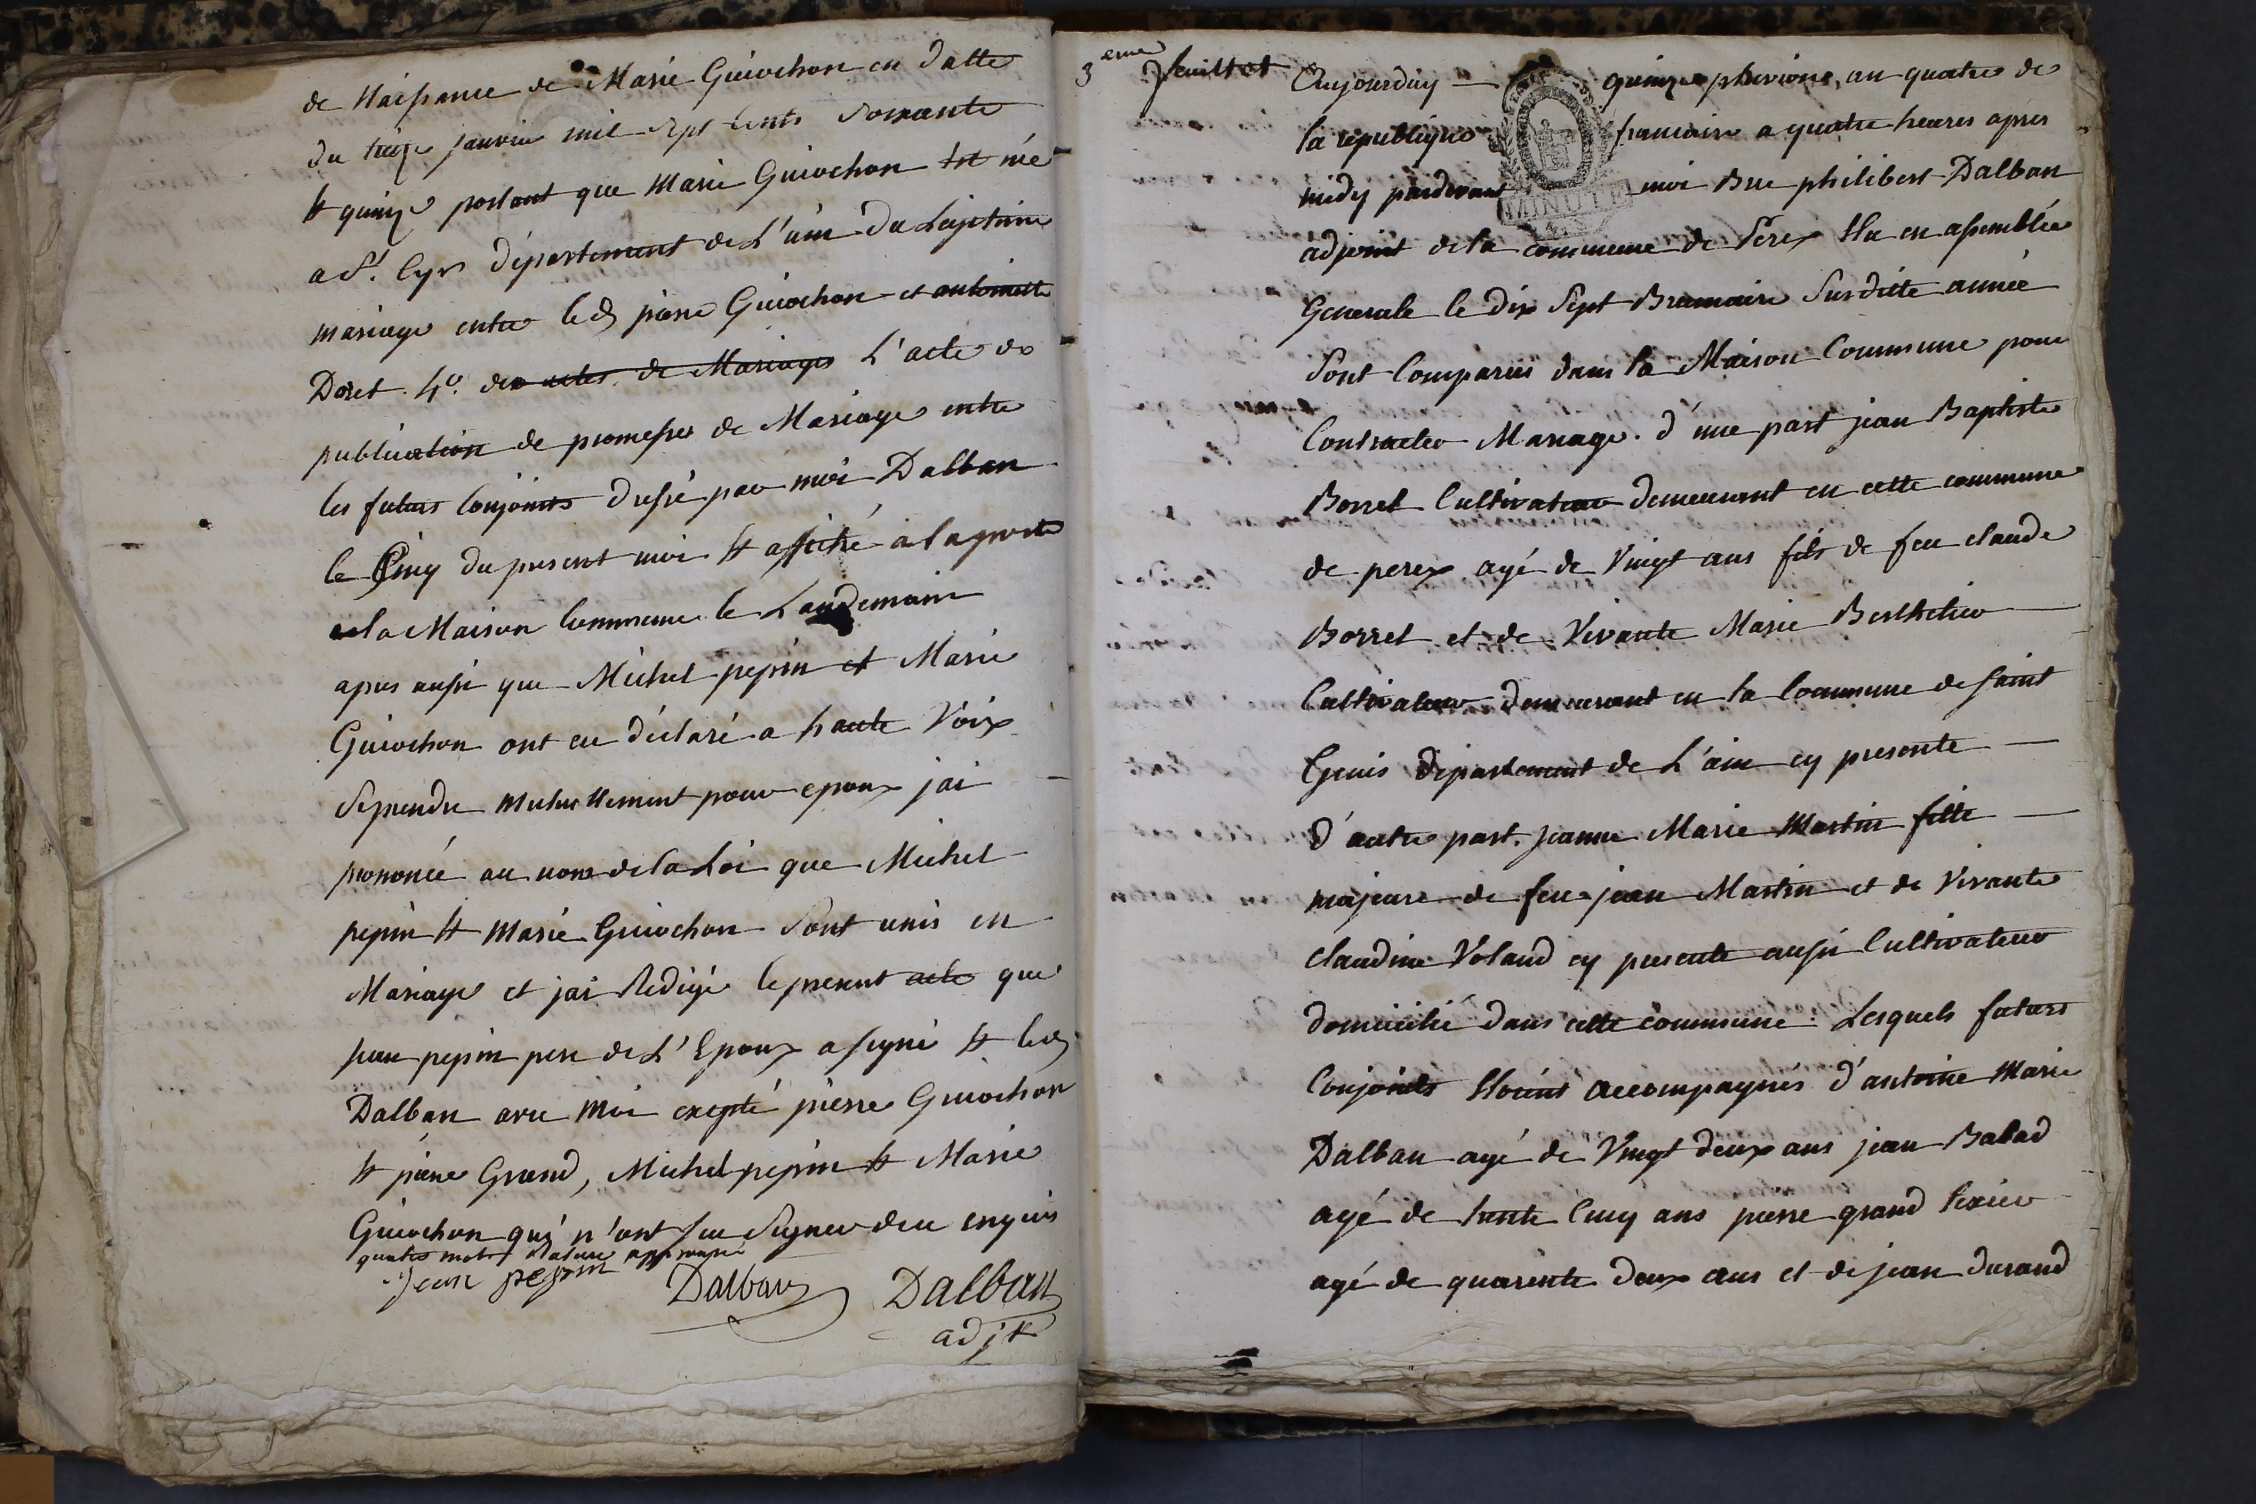 de Naissance de Marie Guiochon en datte
du treize janvier mil sept cents soixante
et quinze portant que Marie Guiochon est née
a St. Cyr département de L'ain du Legitime
mariage entre led pierre Guiochon et antoinette
Doret 4º. des actes de Mariages L'acte de
publication de promesses de Mariage entre
les futurs Conjoints dressé par moi Dalban
le Cinq du present moi et affiché a la porte
de la Maison Commune le Landemain
apres aussi que Michel pepin et Marie
Guiochon ont eu déclaré a haute Voix
Se prendre mutuellement pour epoux j'ai
prononcé au nom de la Loi que Michel
pepin et Marie Guiochon Sont unis en
Mariage et j'ai Redigé le present acte que
jean pepin pere de L'Epoux a signé et led
Dalban avec Moi excepté pierre Guiochon
et pierre Grand, Michel pepin et Marie
Guiochon qui n'ont su Signer de ce enquis
quatre mots Rature approuvé
Jean pepin Dalban Dalban
adjt
3eme feuillet
Aujourduy quinze pluviose, an quatre de
la république francaise a quatre heures apres
midy pardevant moi Bne philibert Dalban
MINUTE
adjoint de la commune de Perex Elu en assemblée
Generale le dix Sept Brumaire Susditte année
Sont Comparus dans la Maison Commune pour
Contracter Mariage. d'une part jean Baptiste
Borret Cultivateur demeurant en cette commune
de perex agé de Vingt ans fils de feu claude
Borret et de Vivante Marie Berthelier
Cultivateur demeurant en la Commune de saint
Genis département de L'ain cy presente
d'autre part. jeanne Marie Martin fille
majeure de feu jean Martin et de Vivante
claudine Voland cy presente aussi Cultivateur
domicilié dans cette commune. Lesquels futurs
Conjoints Etoient accompagnés d'antoine Marie
Dalban agé de Vingt deux ans jean Babad
agé de trente Cinq ans pierre grand texier
agé de quarente deux ans et de jean durand